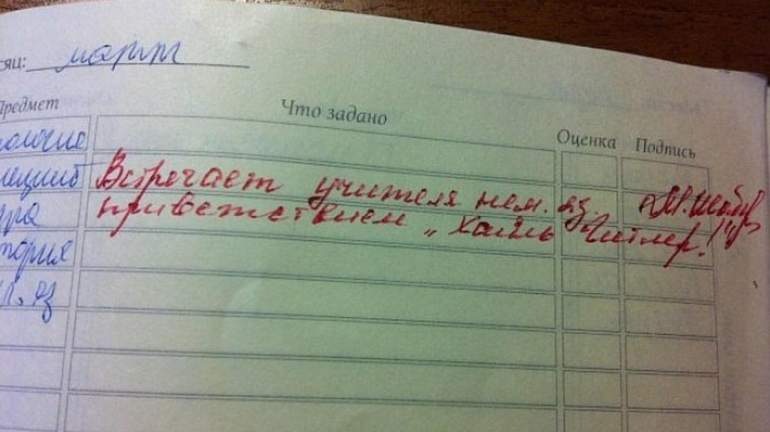 сяц: март
Предмет Что задано Оценка Подпись
ологие
Встречает учителя нем. яз.
приветствием „хайль Гитлер!"
тория